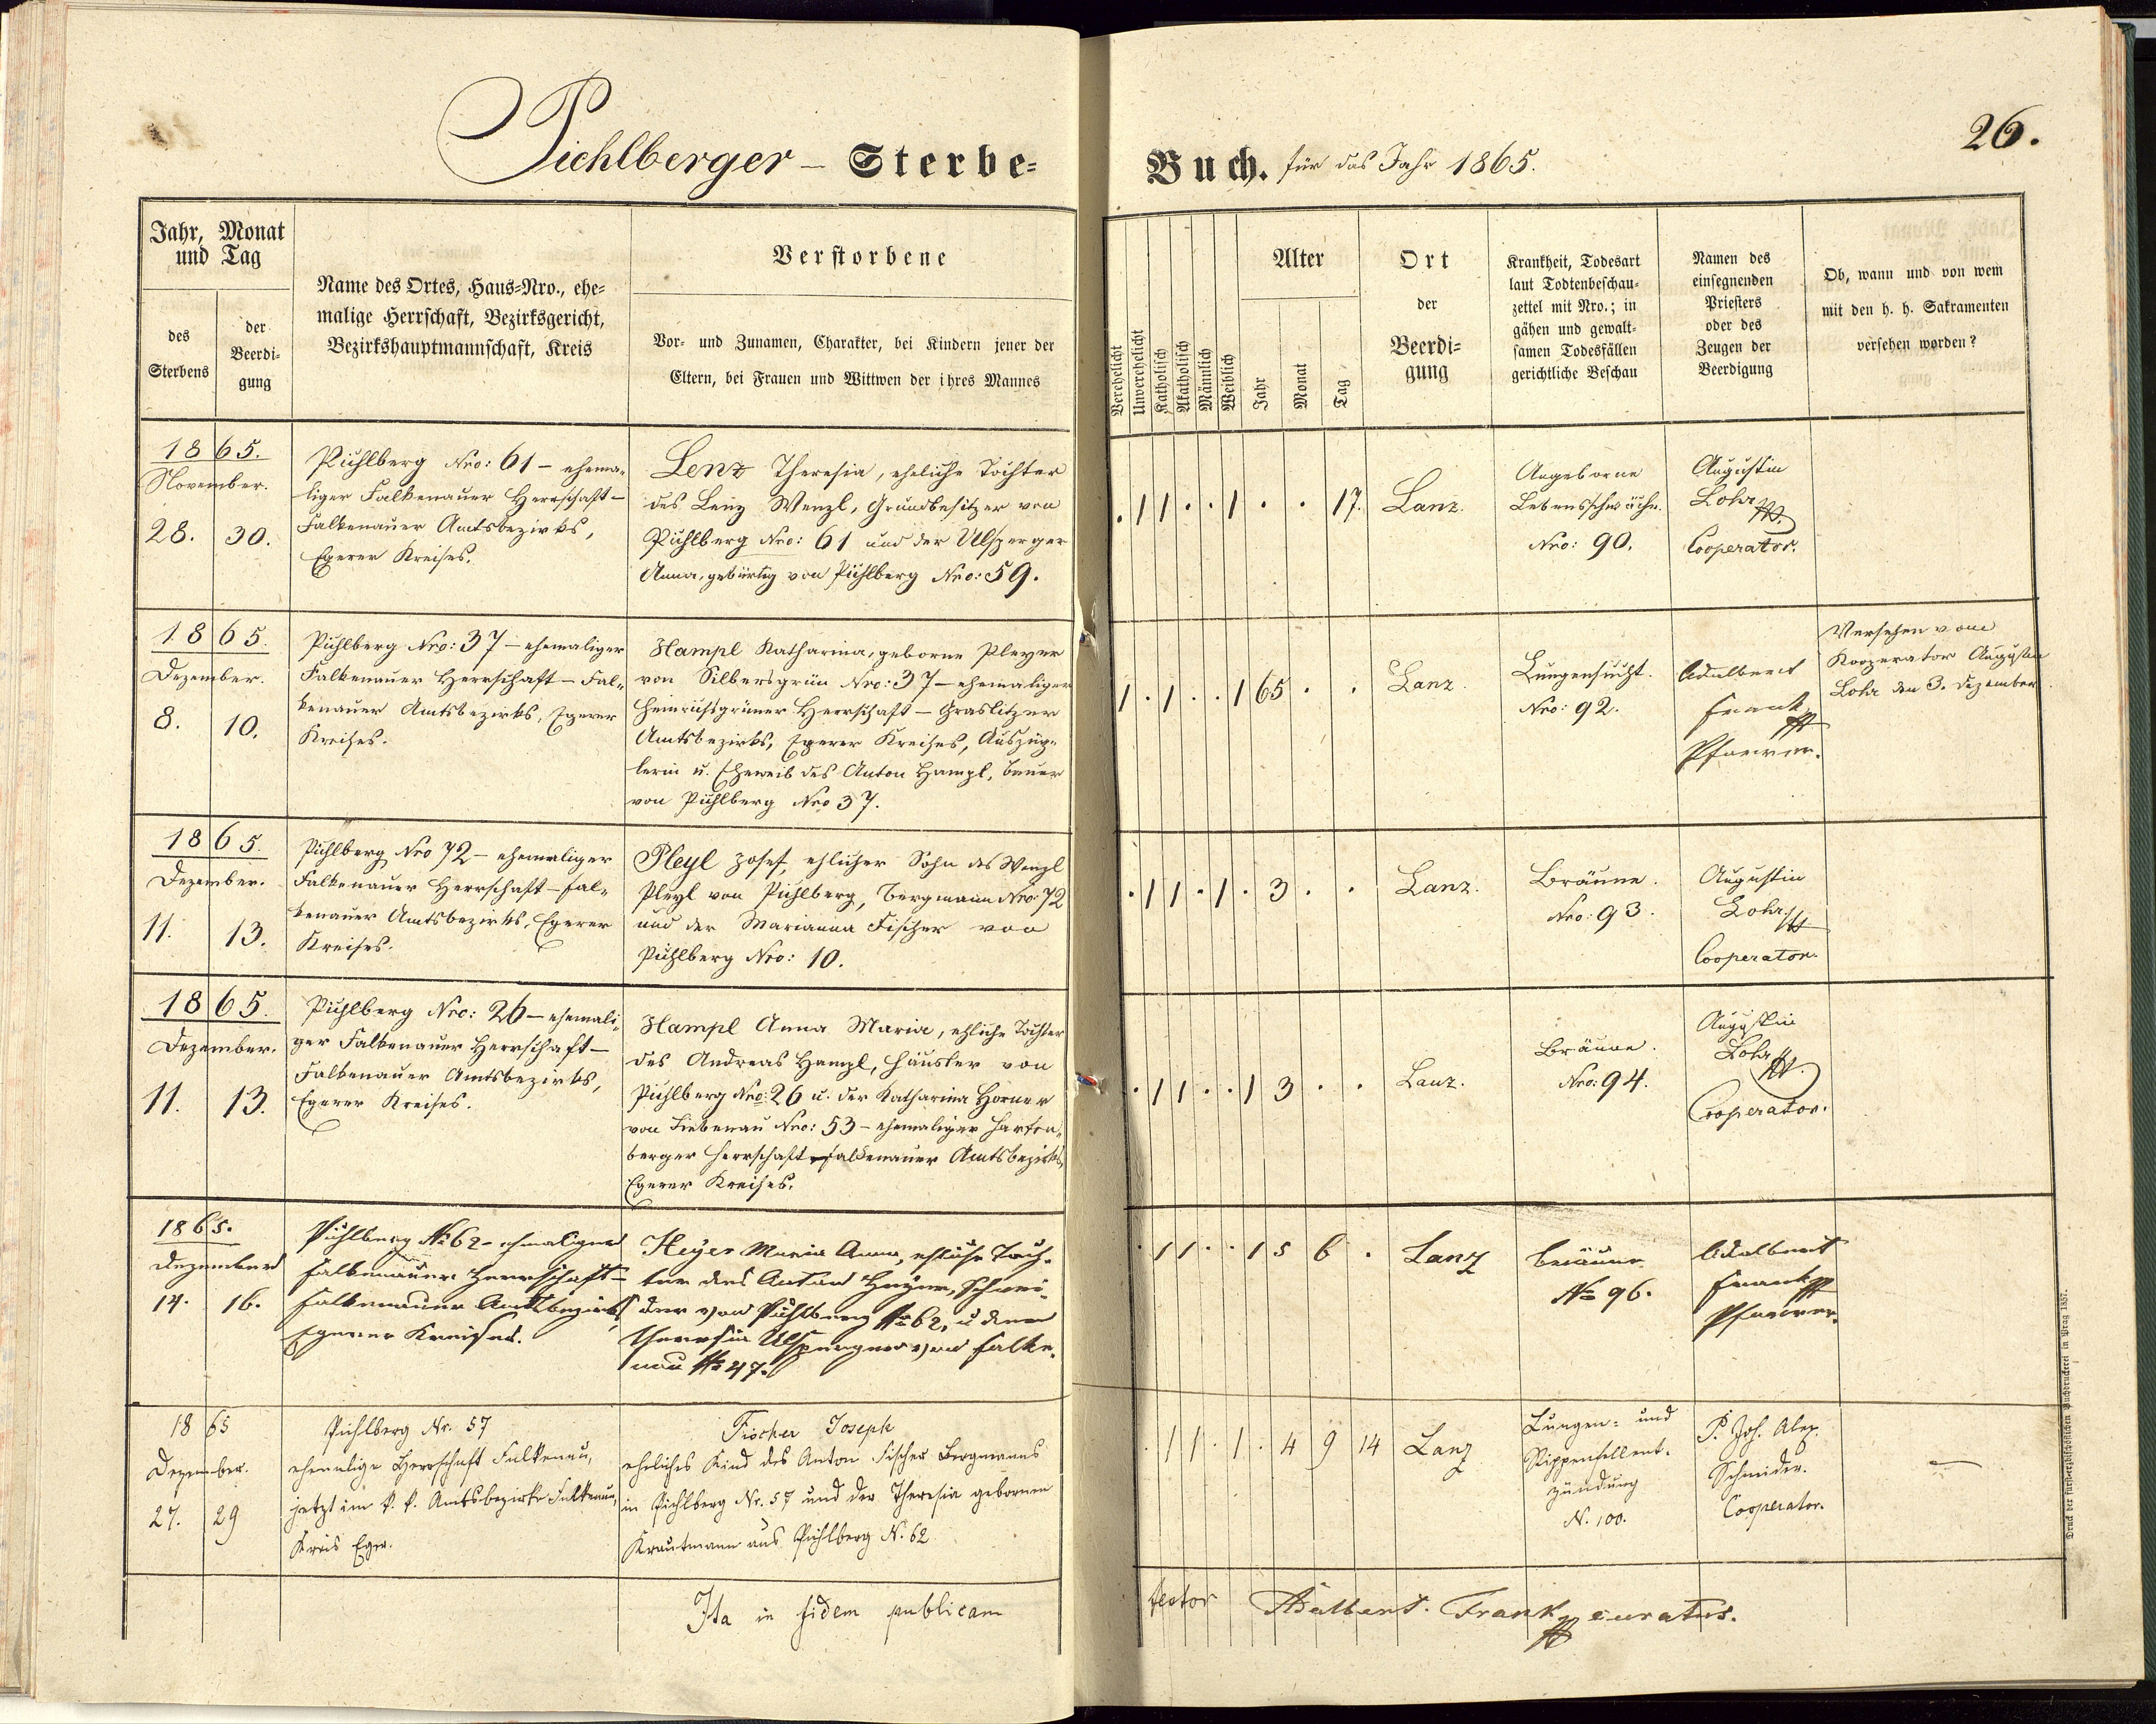 26.
Pichlberger - Sterbe=
Buch. für das Jahr 1865.
Jahr, Monat und Tag
des Sterbens
der Beerdi= gung
Name des Ortes, Haus=Nro., ehe=
malige Herrschaft, Bezirksgericht,
Bezirkshauptmannschaft, Kreis
Verstorbene
Vor= und Zunamen, Charakter, bei Kindern jener der
Eltern, bei Frauen und Wittwen der ihres Mannes
Verehelicht
Unverehelicht
Katholisch
Akatholisch
Männlich
Weiblich
Alter
Jahr
Monat
Tag
Ort
der
Beerdi=
gung
Krankheit, Todesart
laut Todtenbeschau=
zettel mit Nro.; in
gähen und gewalt=
samen Todesfällen
gerichtliche Beschau
Namen des
einsegnenden
Priesters
oder des
Zeugen der
Beerdigung
Ob, wann und von wem
mit den h. h. Sakramenten
versehen worden?
1865.
November.
28. 30.
Pichlberg Nro: 61 - ehema-
liger Falkenauer Herrschaft -
Falkenauer Amtsbezirks,
Egerer Kreises.
Lenz Theresia, eheliche Tochter
des Lenz Wenzl, Grundbesitzer von
Pichlberg Nro: 61 und der Ulsperger
Anna, gebürtig von Pichlberg Nro: 59.
. 1 1 . . 1 . . 17.
Lanz.
Angeborne
Lebensschwäche.
Nro: 90.
Augustin
Lohr
Cooperator.
1865.
Dezember.
8. 10.
Pichlberg Nro: 37 - ehemaliger
Falkenauer Herrschaft - Fal-
kenauer Amtsbezirks, Egerer
Kreises.
Hampl Katharina, geborne Pleyer
von Silbersgrün Nro: 37 - ehemaliger
Heinrichsgrüner Herrschaft - Graslitzer
Amtsbezirks, Egerer Kreises, Auszüg-
lerin u. Eheweib des Anton Hampl, Bauer
von Pichlberg Nro 37.
1 . 1 . . 1 65 . .
Lanz.
Lungensucht.
Nro: 92.
Adalbert
Frank
Pfarrer.
Versehen vom
Kooperator Augustin
Lohr den 3. Dezember.
1865.
Dezember.
11. 13.
Pichlberg Nro 72 - ehemaliger
Falkenauer Herrschaft - Fal-
kenauer Amtsbezirks, Egerer
Kreises.
Pleyl Josef, ehlicher Sohn des Wenzl
Pleyl von Pichlberg, Bergmann Nro: 72
und der Marianna Fischer von
Pichlberg Nro: 10.
. 1 1 . 1 . 3 . .
Lanz.
Bräune.
Nro: 93.
Augustin
Lohr
Cooperator.
1865.
Dezember.
11. 13.
Pichlberg Nro: 26 - ehemali-
ger Falkenauer Herrschaft -
Falkenauer Amtsbezirks,
Egerer Kreises.
Hampl Anna Maria, ehliche Tochter
des Andreas Hampl, Häusler von
Pichlberg Nro: 26 u. der Katharina Horner
von Liebenau Nro: 53 - ehemaliger Harten-
berger Herrschaft - Falkenauer Amtsbezirks
Egerer Kreises.
. 1 1 . . 1 3 . .
Lanz.
Bräune.
Nro: 94.
Augustin
Lohr
Cooperator.
1865.
Dezember
14. 16.
Pichlberg No 62 - ehmaliger
Falkenauer Herrschaft -
Falkenauer Amtsbezirks
Egerer Kreises.
Heyer Maria Anna, ehliche Toch-
ter des Anton Heyer, Schnei-
der von Pichlberg No 62, u der
Theresia Ulsperger von Falke-
nau No 47.
. 1 1 . . 1 5 6 .
Lanz
Bräune
No 96.
Adalbert
Frank
Pfarrer.
1865
Dezember.
27. 29
Pichlberg Nr. 57
ehemalige Herrschaft Falkenau,
jetzt im k. k. Amtsbezirke Falkenau,
Kreis Eger.
Fischer Joseph
eheliches Kind des Anton Fischer Bergmanns
in Pichlberg Nr. 57 und der Theresia gebornen
Krautmann aus Pichlberg N. 62
. 1 1 . 1 . 4 9 14
Lanz
Lungen= und
Rippenfellent-
zündung
N. 100.
P. Joh. Alex.
Schmider.
Cooperator.
—
Ita in fidem publicam
testor Adalbert. Frank curatus.
Druck der fürsterzbischöflichen Buchdruckerei in Prag 1857.